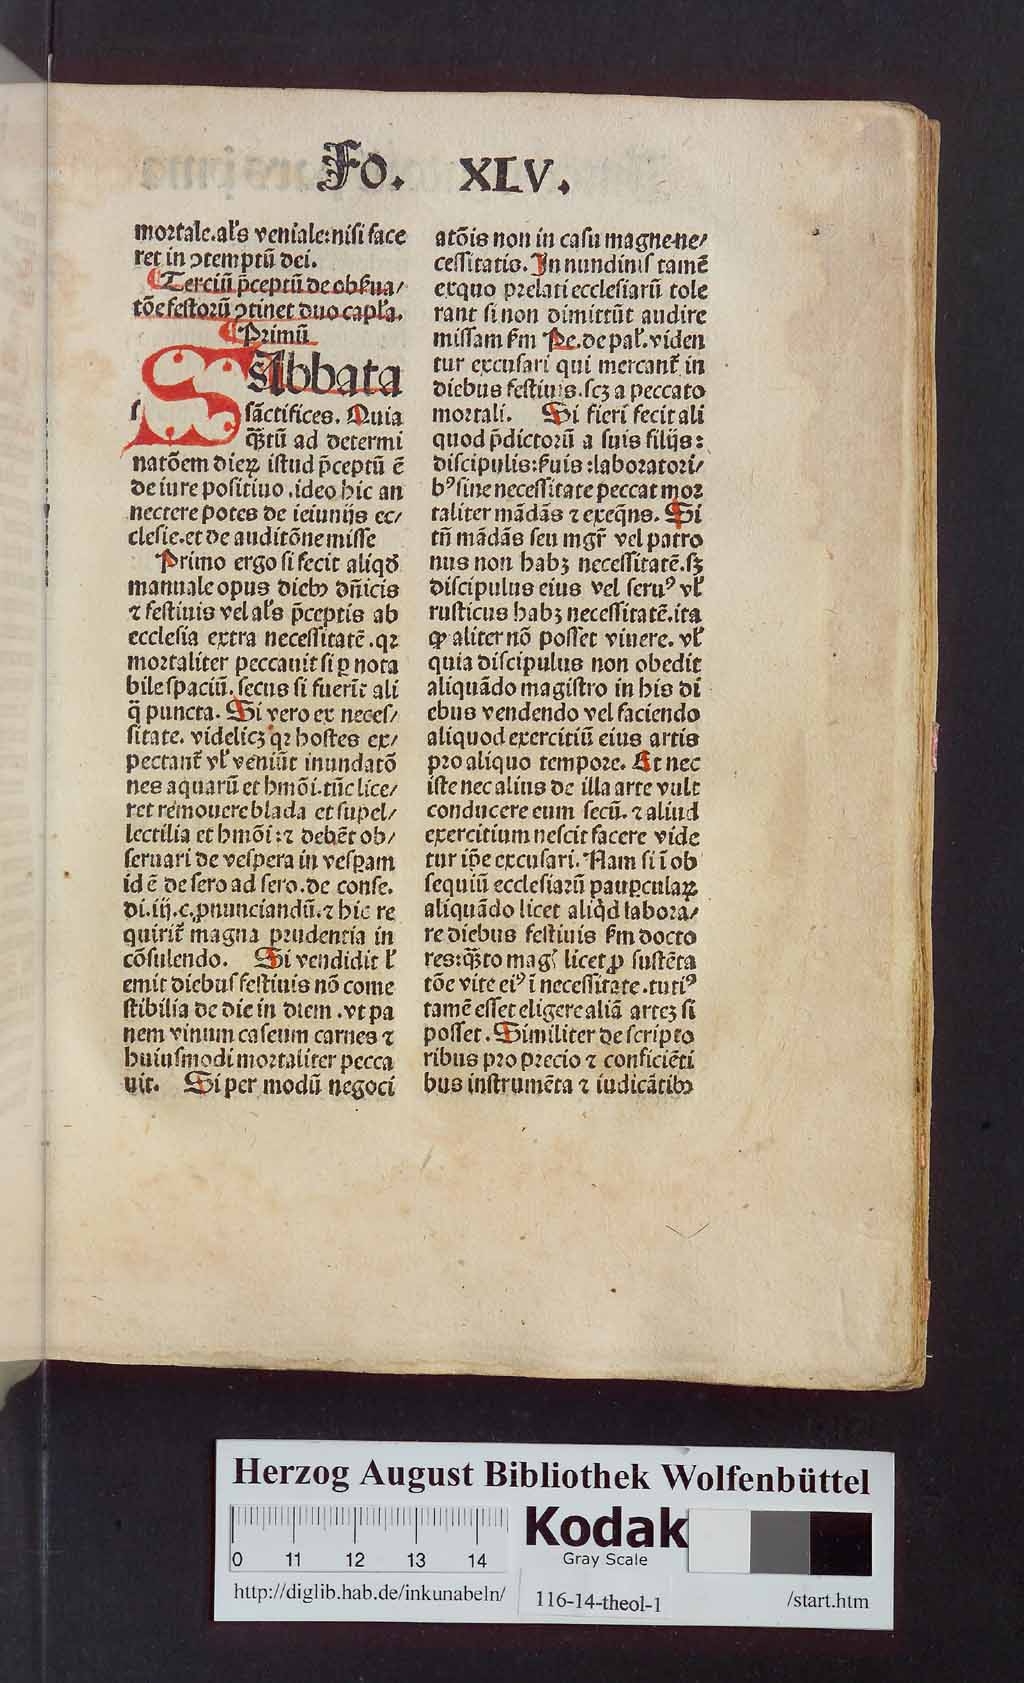 Fo. XLV.
mortale.al's veniale:nisi face
ret in ꝯtemptū dei.
¶Terciū p̄ceptū de obẜua/
tōe festorū ꝯtinet duo capl'a.
¶Primū
SAbbata
sāctifices. Quia
q̄ꝫtū ad determi
natōem dieꝝ istud p̄ceptū ē
de iure positiuo.ideo hic an
nectere potes de ieiunijs ec/
clesie.et de auditōne misse
Primo ergo si fecit aliqd̄
manuale opus diebꝫ dn̄icis
⁊ festiuis vel al's p̄ceptis ab
ecclesia extra necessitatē.qꝛ
mortaliter peccauit si ꝑ nota
bile spaciū. secus si fuerīt ali
q̄ puncta. Si vero ex neces/
sitate. videlicꝫ qꝛ hostes ex/
pectant᷑ vl' veniūt inundatō
nes aquarū et hmōi.tūc lice/
ret remouere blada et supel/
lectilia et hmōi:⁊ debēt ob/
seruari de vespera in vesꝑam
id ē de sero ad sero.de conse.
di.iij.c.ꝓnunciandū.⁊ hic re
quirit᷑ magna prudentia in
cōsulendo. Si vendidit l'
emit diebus festiuis nō come
stibilia de die in diem.vt pa
nem vinum caseum carnes ⁊
huiusmodi mortaliter pecca
uit. Si per modū negoci
atōis non in casu magne ne/
cessitatis. In nundinis tamē
exquo prelati ecclesiarū tole
rant si non dimittūt audire
missam ẜm Pe.de pal'.viden
tur excusari qui mercant᷑ in
diebus festiuis.scꝫ a peccato
mortali. Si fieri fecit ali
quod p̄dictorū a suis filijs:
discipulis:ẜuis:laboratori/
bꝰ sine necessitate peccat mor
taliter mādās ⁊ exeq̄ns. Si
tn̄ mādās seu mgr̄ vel patro
nus non habꝫ necessitatē.sꝫ
discipulus eius vel seruꝰ vl'
rusticus habꝫ necessitatē.ita
ꝙ aliter nō posset viuere. vl'
quia discipulus non obedit
aliquādo magistro in his di
ebus vendendo vel faciendo
aliquod exercitiū eius artis
pro aliquo tempore. Et nec
iste nec alius de illa arte vult
conducere eum secū. ⁊ aliud
exercitium nescit facere vide
tur ip̄e excusari. Nam si ī ob
sequiū ecclesiarū pauꝑculaꝝ
aliquādo licet aliq̇d labora/
re diebus festiuis ẜm docto
res:q̄ꝫto magꝭ licet ꝓ sustēta
tōe vite eiꝰ ī necessitate.tutiꝰ
tamē esset eligere aliā artēꝫ si
posset. Similiter de scripto
ribus pro precio ⁊ conficiēti
bus instrumēta ⁊ iudicātibꝫ
Herzog August Bibliothek Wolfenbüttel
0 11 12 13 14
Kodak
Gray Scale
http://diglib.hab.de/inkunabeln/
116-14-theol-1
/start.htm